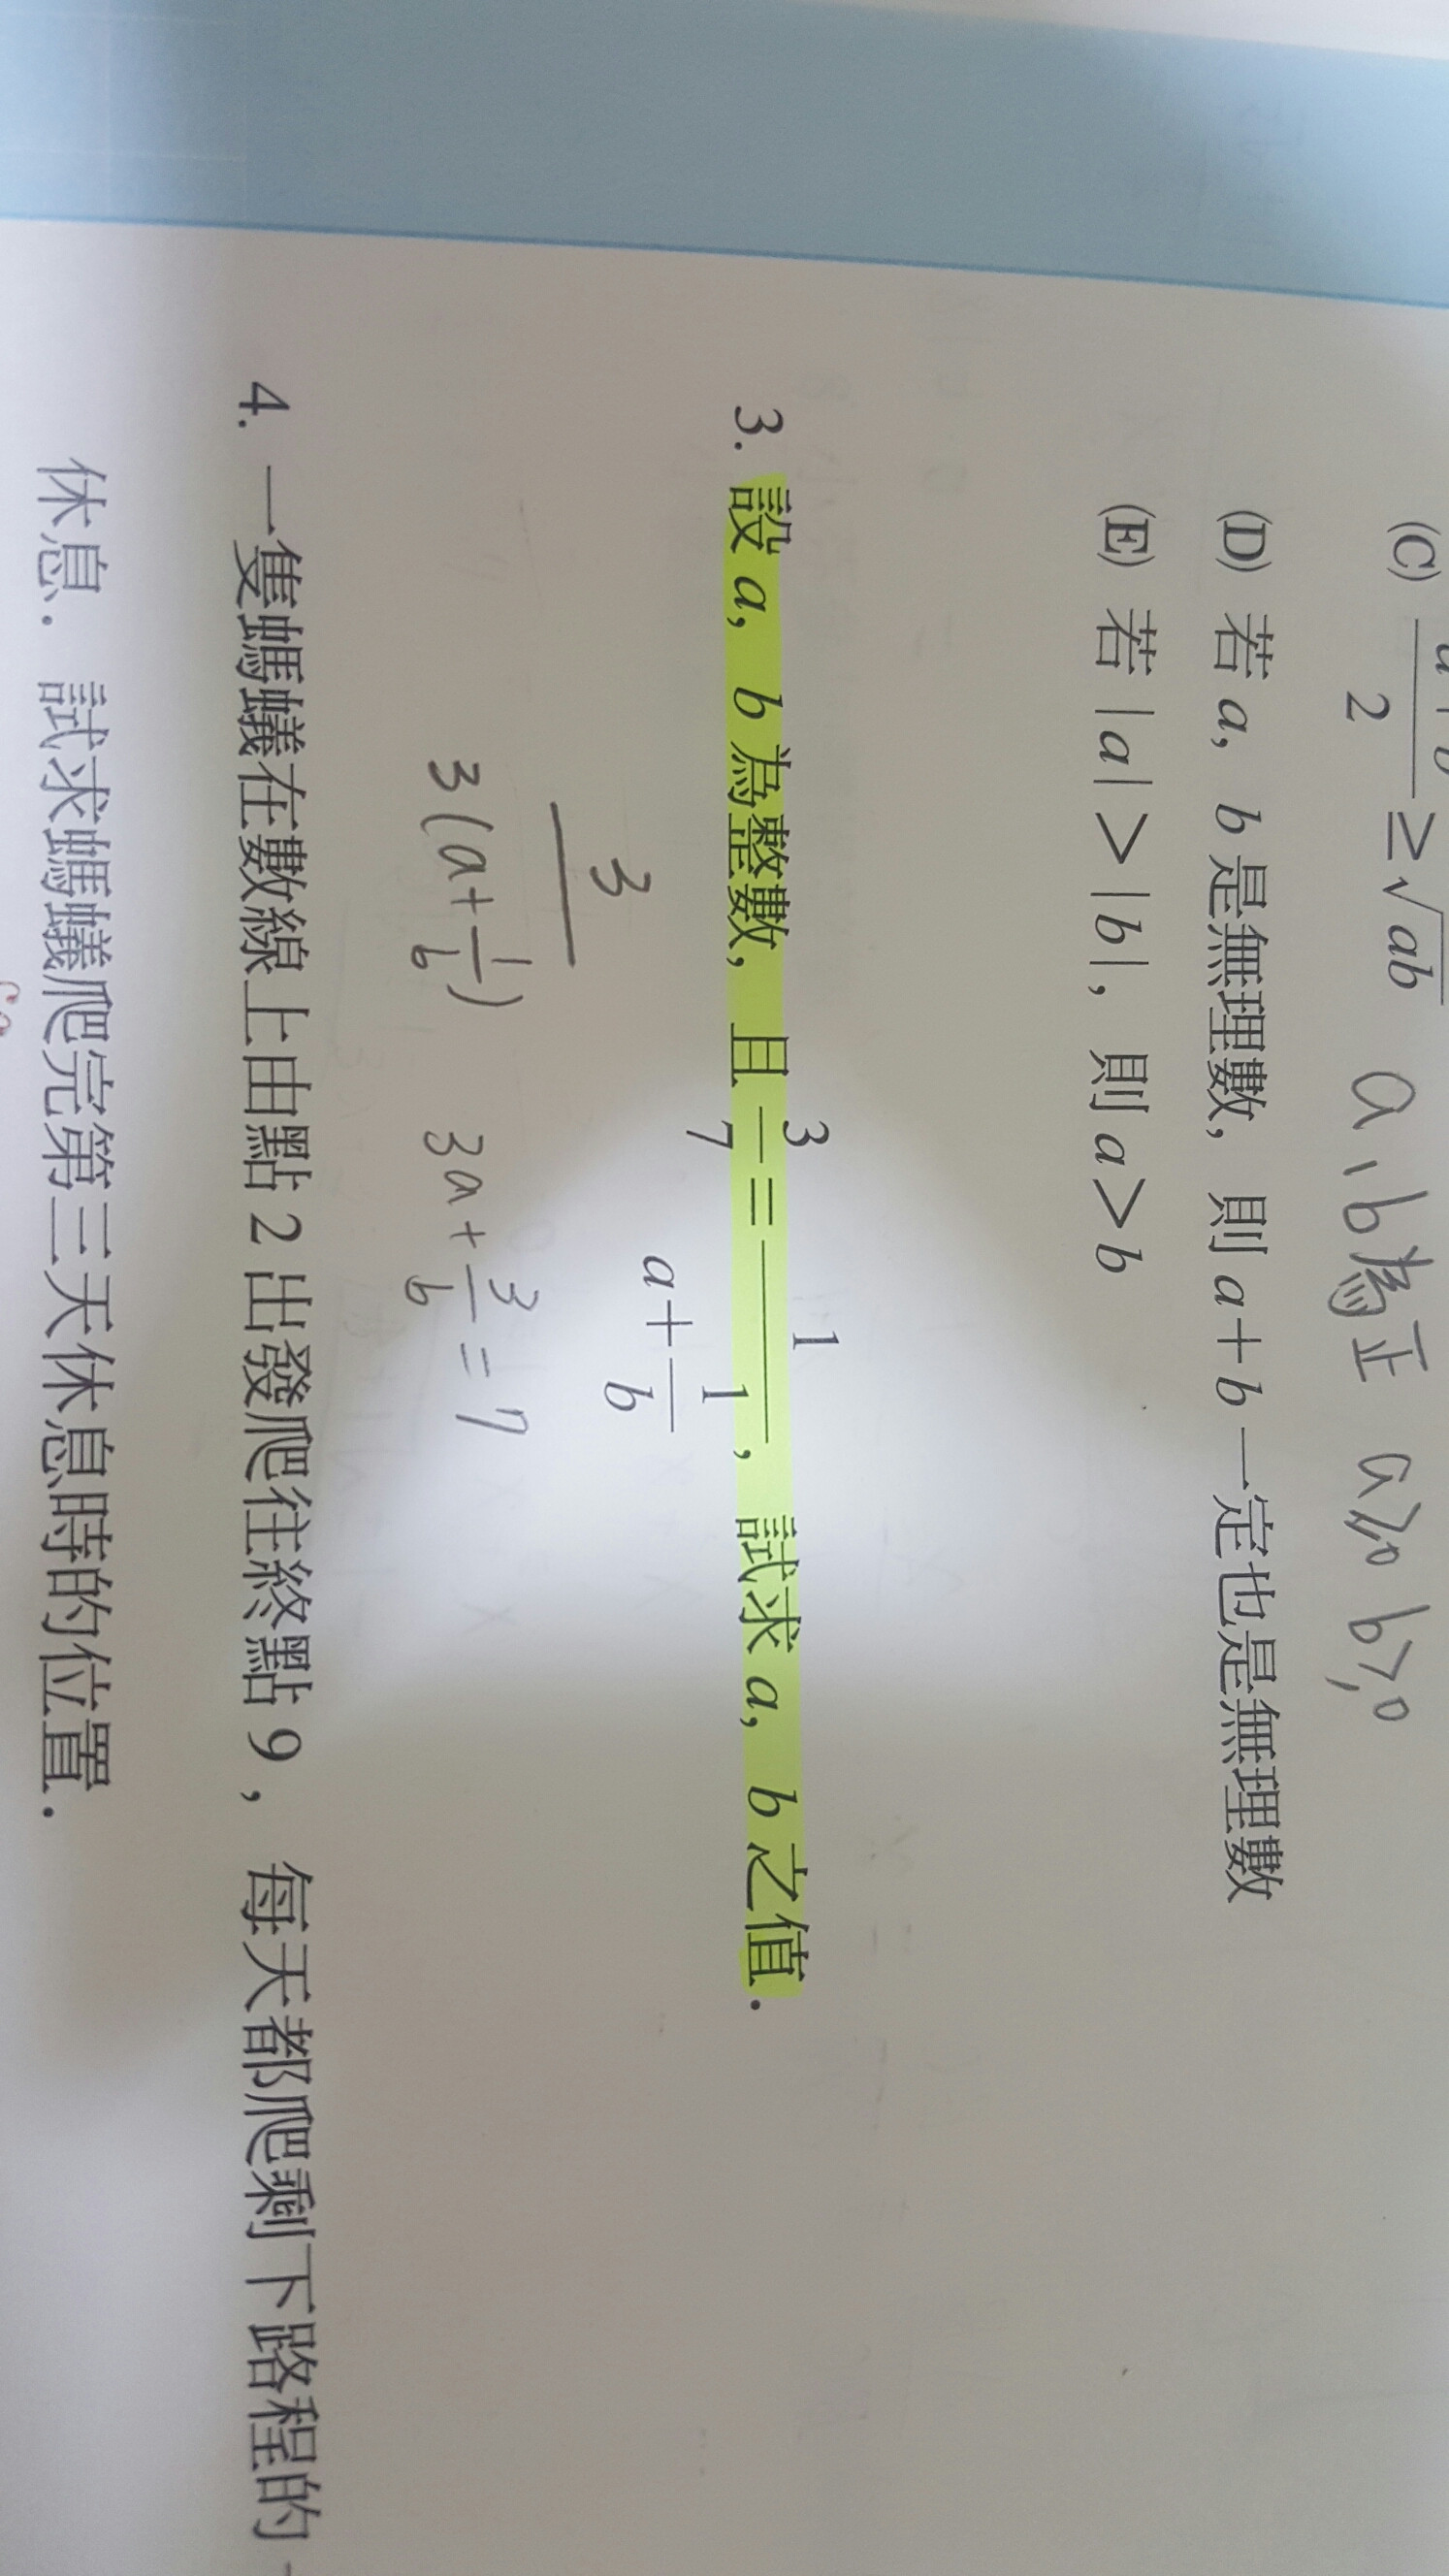 (C) a+b/2 ≥ √ab a, b為正 a≥0 b≥0
(D) 若 a, b 是無理數, 則 a+b 一定也是無理數
(E) 若 |a|>|b|, 則 a>b
3. 設 a, b 為整數, 且 3/7 = 1/(a+1/b), 試求 a, b 之值.
3
3(a+1/b) 3a+3/b=7
4. 一隻螞蟻在數線上由點 2 出發爬往終點 9, 每天都爬剩下路程的
休息. 試求螞蟻爬完第三天休息時的位置.